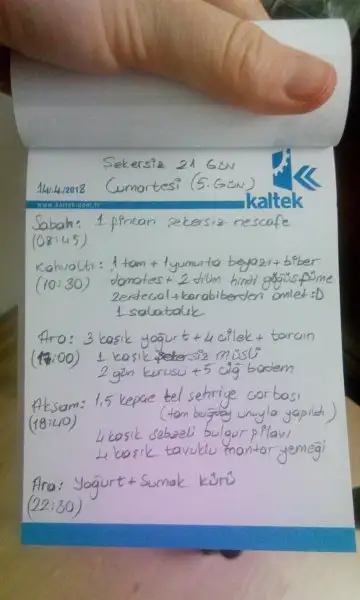 Şekersiz 21 Gün
14/4/2018 Cumartesi (5. Gün)
kaltek
www.kaltek.com.tr
Sabah: 1 fincan şekersiz nescafe
(08:45)
Kahvaltı: 1 tam + 1 yumurta beyazı + biber
(10:30) domates + 2 dilim hindi göğüs füme
zerdeçal + karabiberden omlet :D
1 salatalık
Ara: 3 kaşık yoğurt + 4 çilek + tarçın
(17:00) 1 kaşık şekersiz müsli
2 gün kurusu + 5 çiğ badem
Akşam: 1,5 kepçe tel şehriye çorbası
(18:40) (tam buğday unuyla yapıldı)
4 kaşık sebzeli bulgur pilavı
4 kaşık tavuklu mantar yemeği
Ara: Yoğurt + Sumak kürü
(22:30)